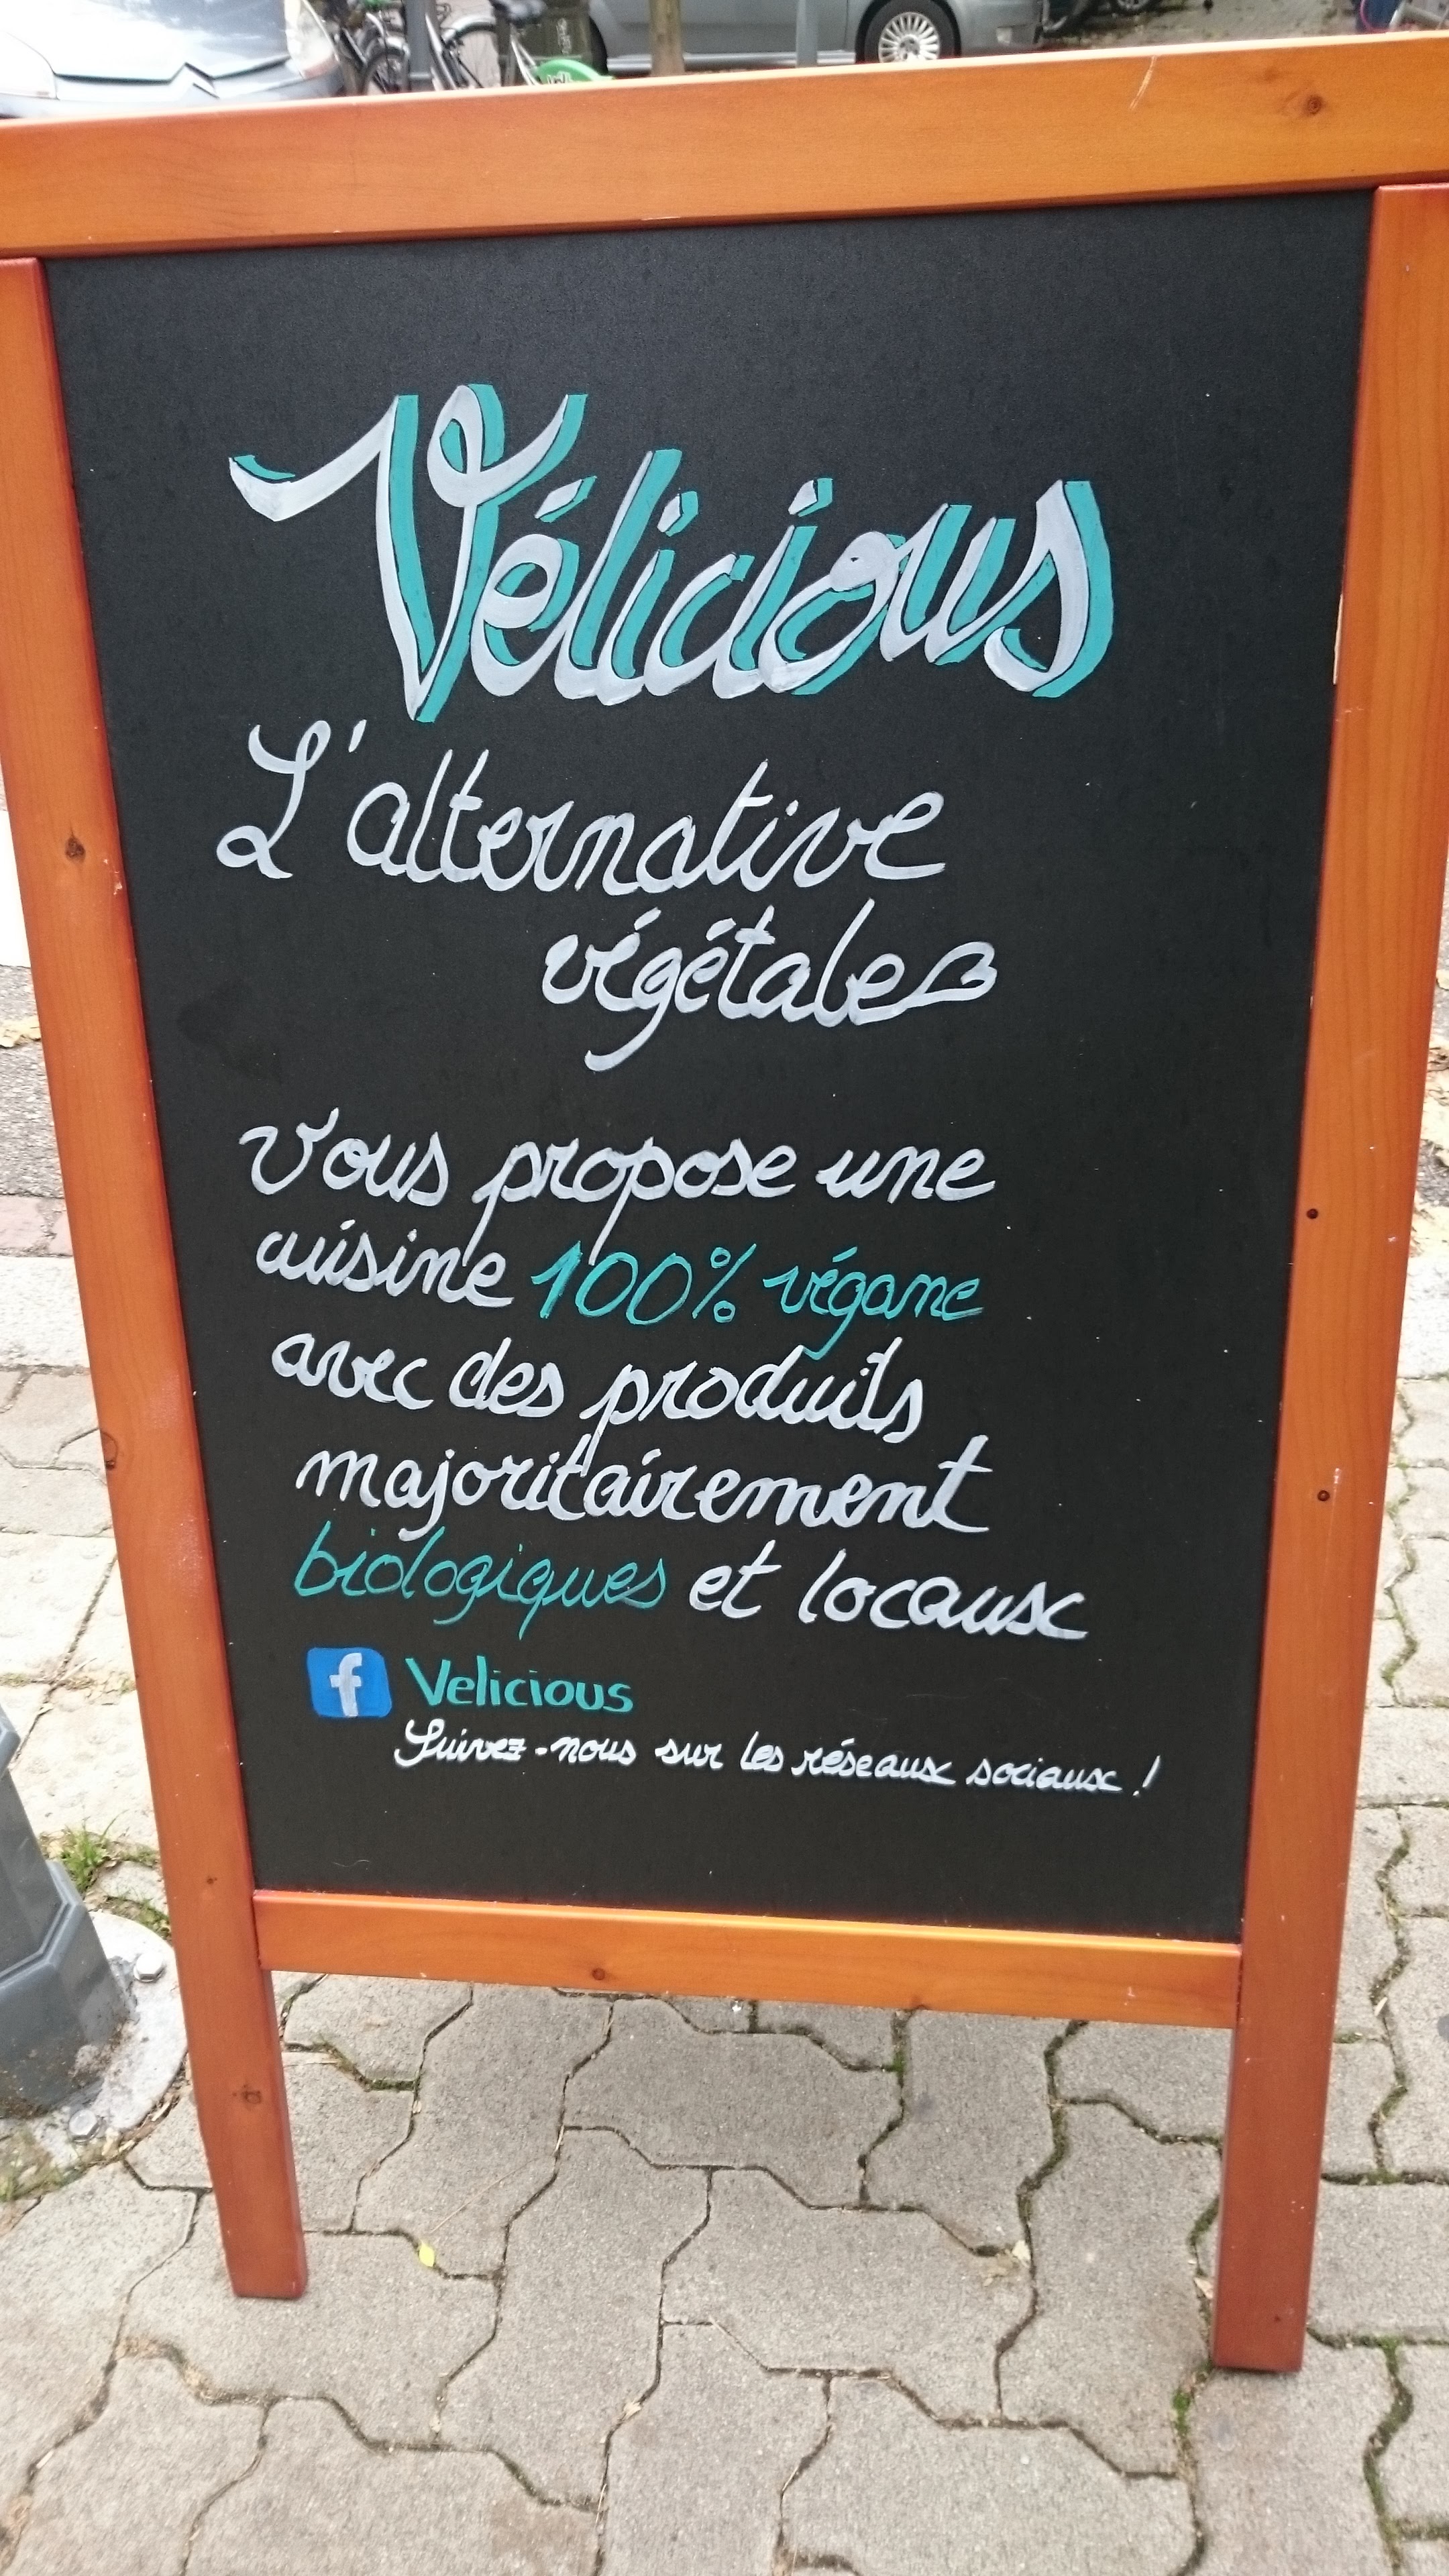 Vélicious
L'alternative
végétale
Vous propose une
cuisine 100% végane
avec des produits
majoritairement
biologiques et locaux
f Velicious
Suivez-nous sur les réseaux sociaux !